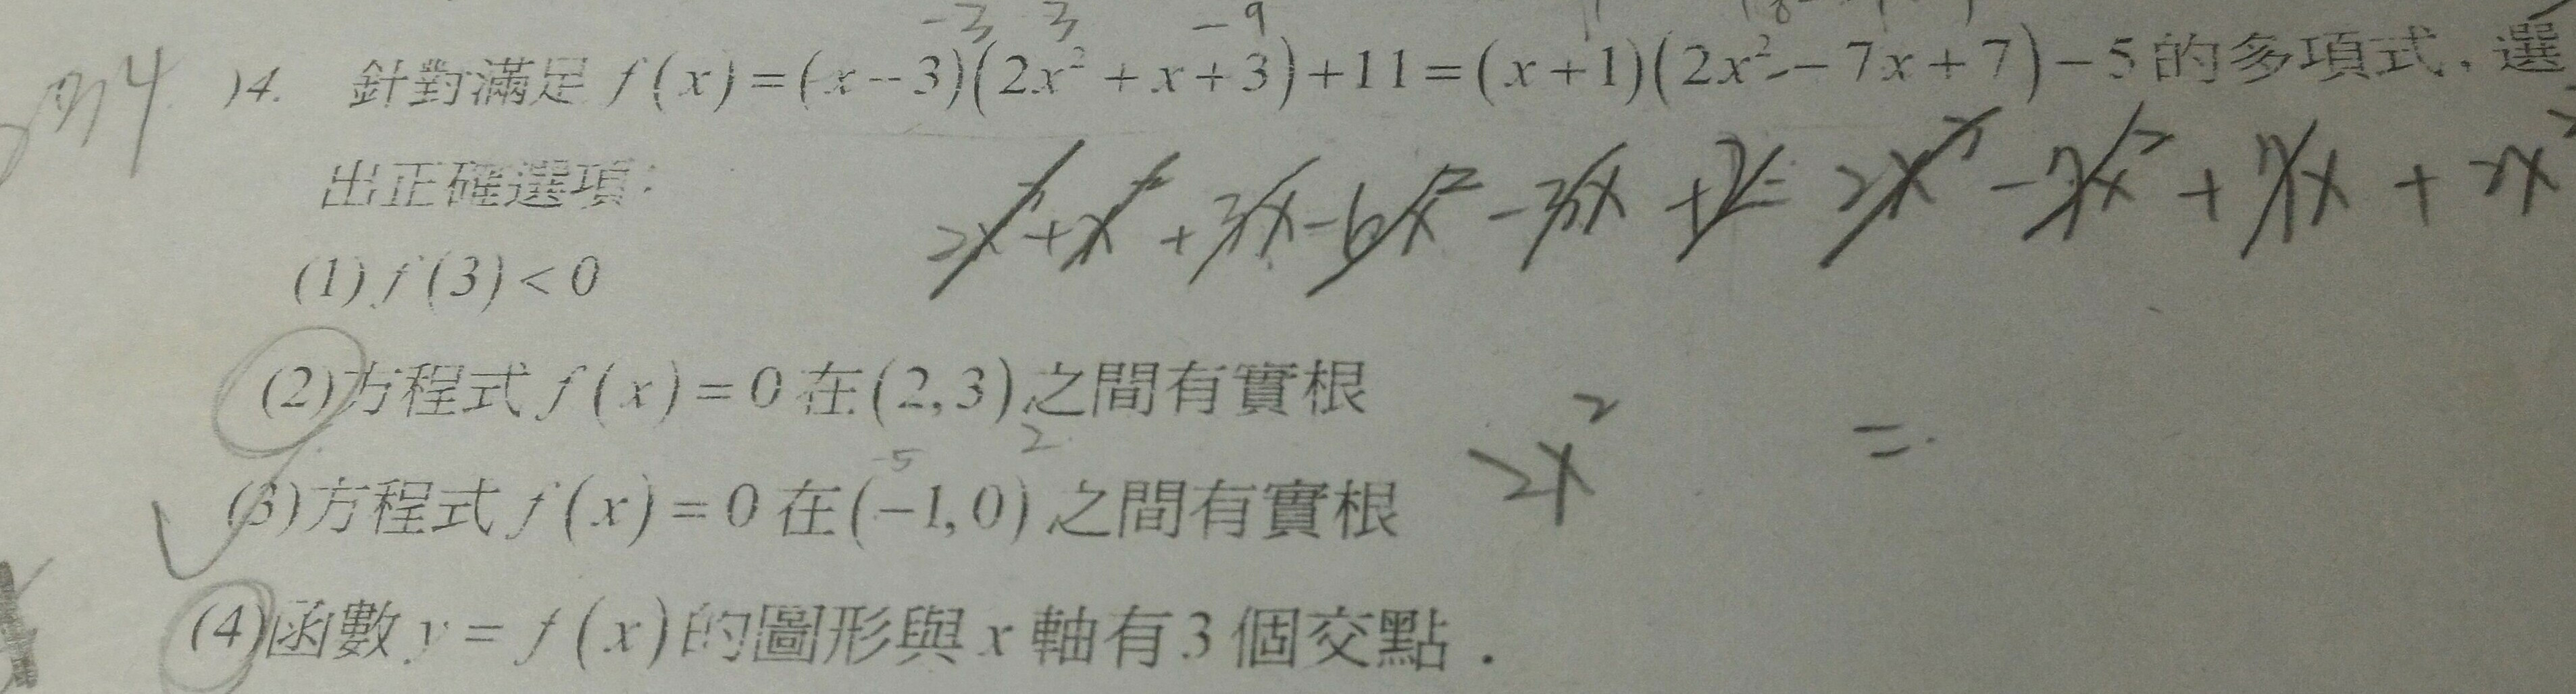 -3 3 -9
14. 針對滿足 f(x)=(x-3)(2x²+x+3)+11=(x+1)(2x²-7x+7)-5 的多項式，選
出正確選項：
2x³+x²+3x-6x²-3x+2=2x³-7x²+7x+2x²
(1) f(3)<0
(2)方程式 f(x)=0 在(2,3)之間有實根
2x² =
-5 2
(3)方程式 f(x)=0 在(-1,0)之間有實根
(4)函數 y=f(x)的圖形與 x 軸有 3 個交點．